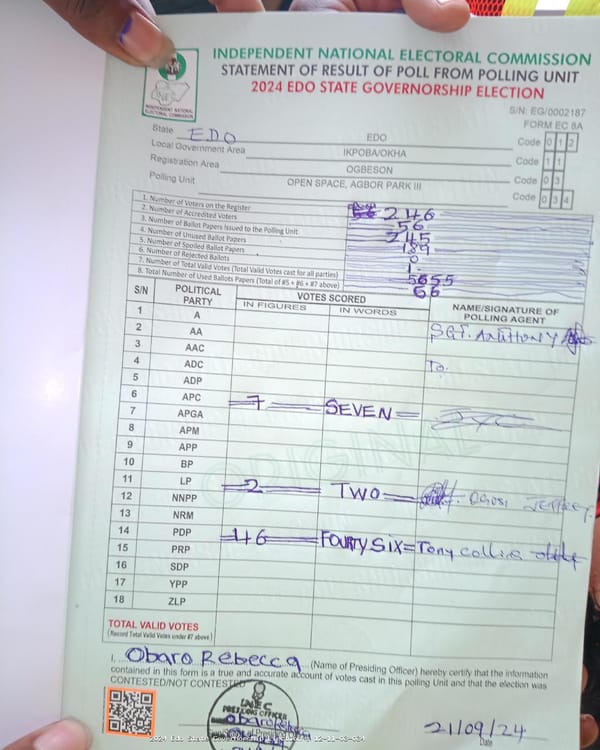 INDEPENDENT NATIONAL ELECTORAL COMMISSION
STATEMENT OF RESULT OF POLL FROM POLLING UNIT
2024 EDO STATE GOVERNORSHIP ELECTION
INDEPENDENT NATIONAL ELECTORAL COMMISSION
S/N: EG/0002187
FORM EC 8A
State EDO EDO Code 0 1 2
Local Government Area IKPOBA/OKHA Code 1 1
Registration Area OGBESON Code 0 3
Polling Unit OPEN SPACE, AGBOR PARK III Code 0 3 4
1. Number of Voters on the Register 246
2. Number of Accredited Voters 56
3. Number of Ballot Papers Issued to the Polling Unit 245
4. Number of Unused Ballot Papers 189
5. Number of Spoiled Ballot Papers 0
6. Number of Rejected Ballots 1
7. Number of Total Valid Votes (Total Valid Votes cast for all parties) 55
8. Total Number of Used Ballots Papers (Total of #5 + #6 + #7 above)
S/N POLITICAL PARTY VOTES SCORED NAME/SIGNATURE OF POLLING AGENT
IN FIGURES IN WORDS
1 A
2 AA SGT. Anthony
3 AAC
4 ADC To.
5 ADP
6 APC 7 SEVEN
7 APGA
8 APM
9 APP
10 BP
11 LP 2 TWO
12 NNPP
13 NRM
14 PDP 46 FOURTY SIX Tony collins
15 PRP
16 SDP
17 YPP
18 ZLP
TOTAL VALID VOTES
(Record Total Valid Votes under #7 above)
I, Obaro Rebecca (Name of Presiding Officer) hereby certify that the information
contained in this form is a true and accurate account of votes cast in this polling Unit and that the election was
CONTESTED/NOT CONTESTED
INEC
PRESIDING OFFICER
21/09/24
Date